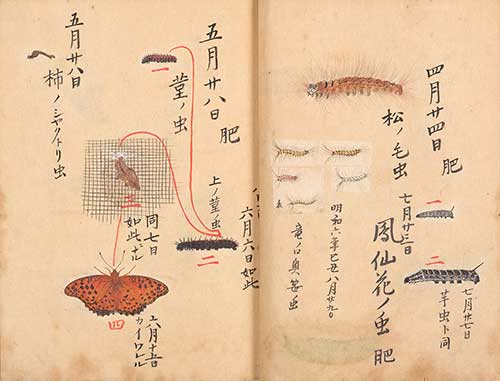 四月廿四日 肥
松ノ毛虫
七月廿三日
鳳仙花ノ虫 肥
一
二
七月廿七日
芋虫ト同
明和六年己丑八月廿九日
五月廿八日 肥
菫ノ虫
一
上ノ菫ノ虫
六月六日如此
二
三
同七日
如此ナル
四
六月十五日
カイワレル
五月廿八日
柿ノシャクトリ虫